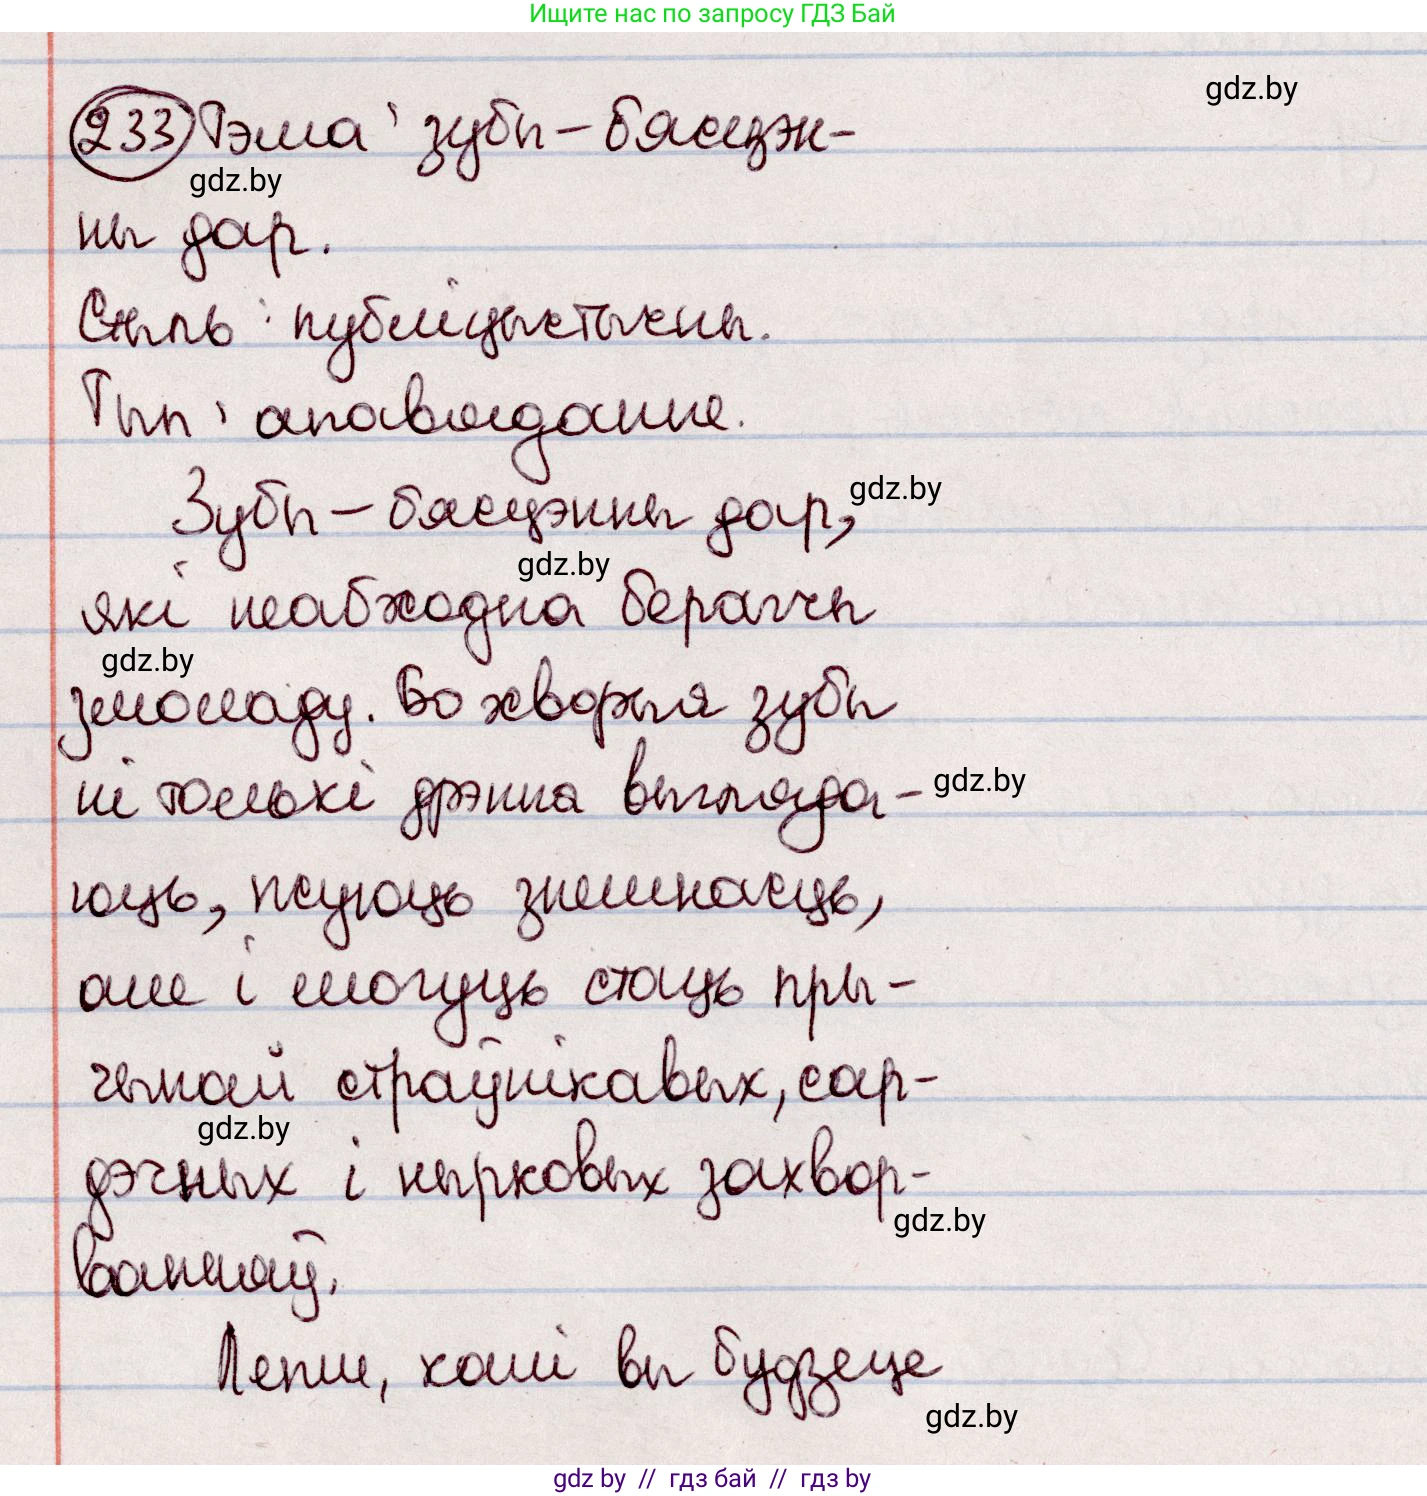 Ищите нас по запросу ГДЗ Бай
gdz.by
233 Тэма: зубы – бясцэн-
gdz.by
ны дар.
Стыль: публіцыстычны.
Тып: апавяданне.
Зубы – бясцэнны дар,
gdz.by
gdz.by
які неабходна берагчы
gdz.by
змоладу. Бо хворыя зубы
ні толькі дрэнна выгляда-
gdz.by
юць, псуюць знешнасць,
але і могуць стаць пры-
чынай страўнікавых, сар-
gdz.by
дэчных і ныркавых захвор-
gdz.by
ванняў.
Лепш, калі вы будзеце
gdz.by
gdz by // гдз бай // гдз by